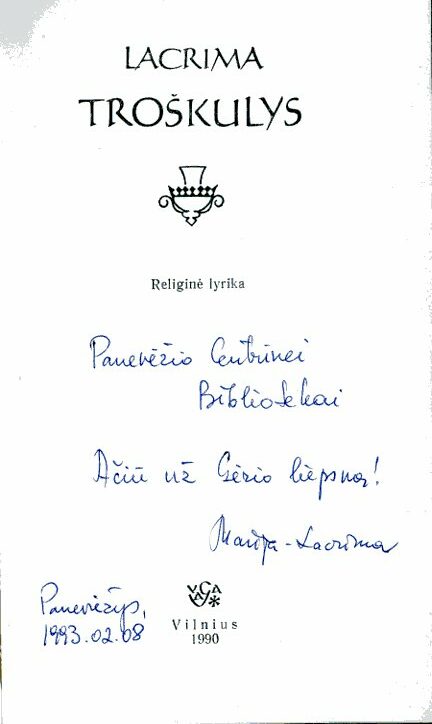 LACRIMA
TROŠKULYS
Religinė lyrika
Panevėžio Centrinei
Bibliotekai
Ačiū už Gėrio liepsną!
Marija-Lacrima
VAGA
Panevėžys,
1993.02.08
Vilnius
1990